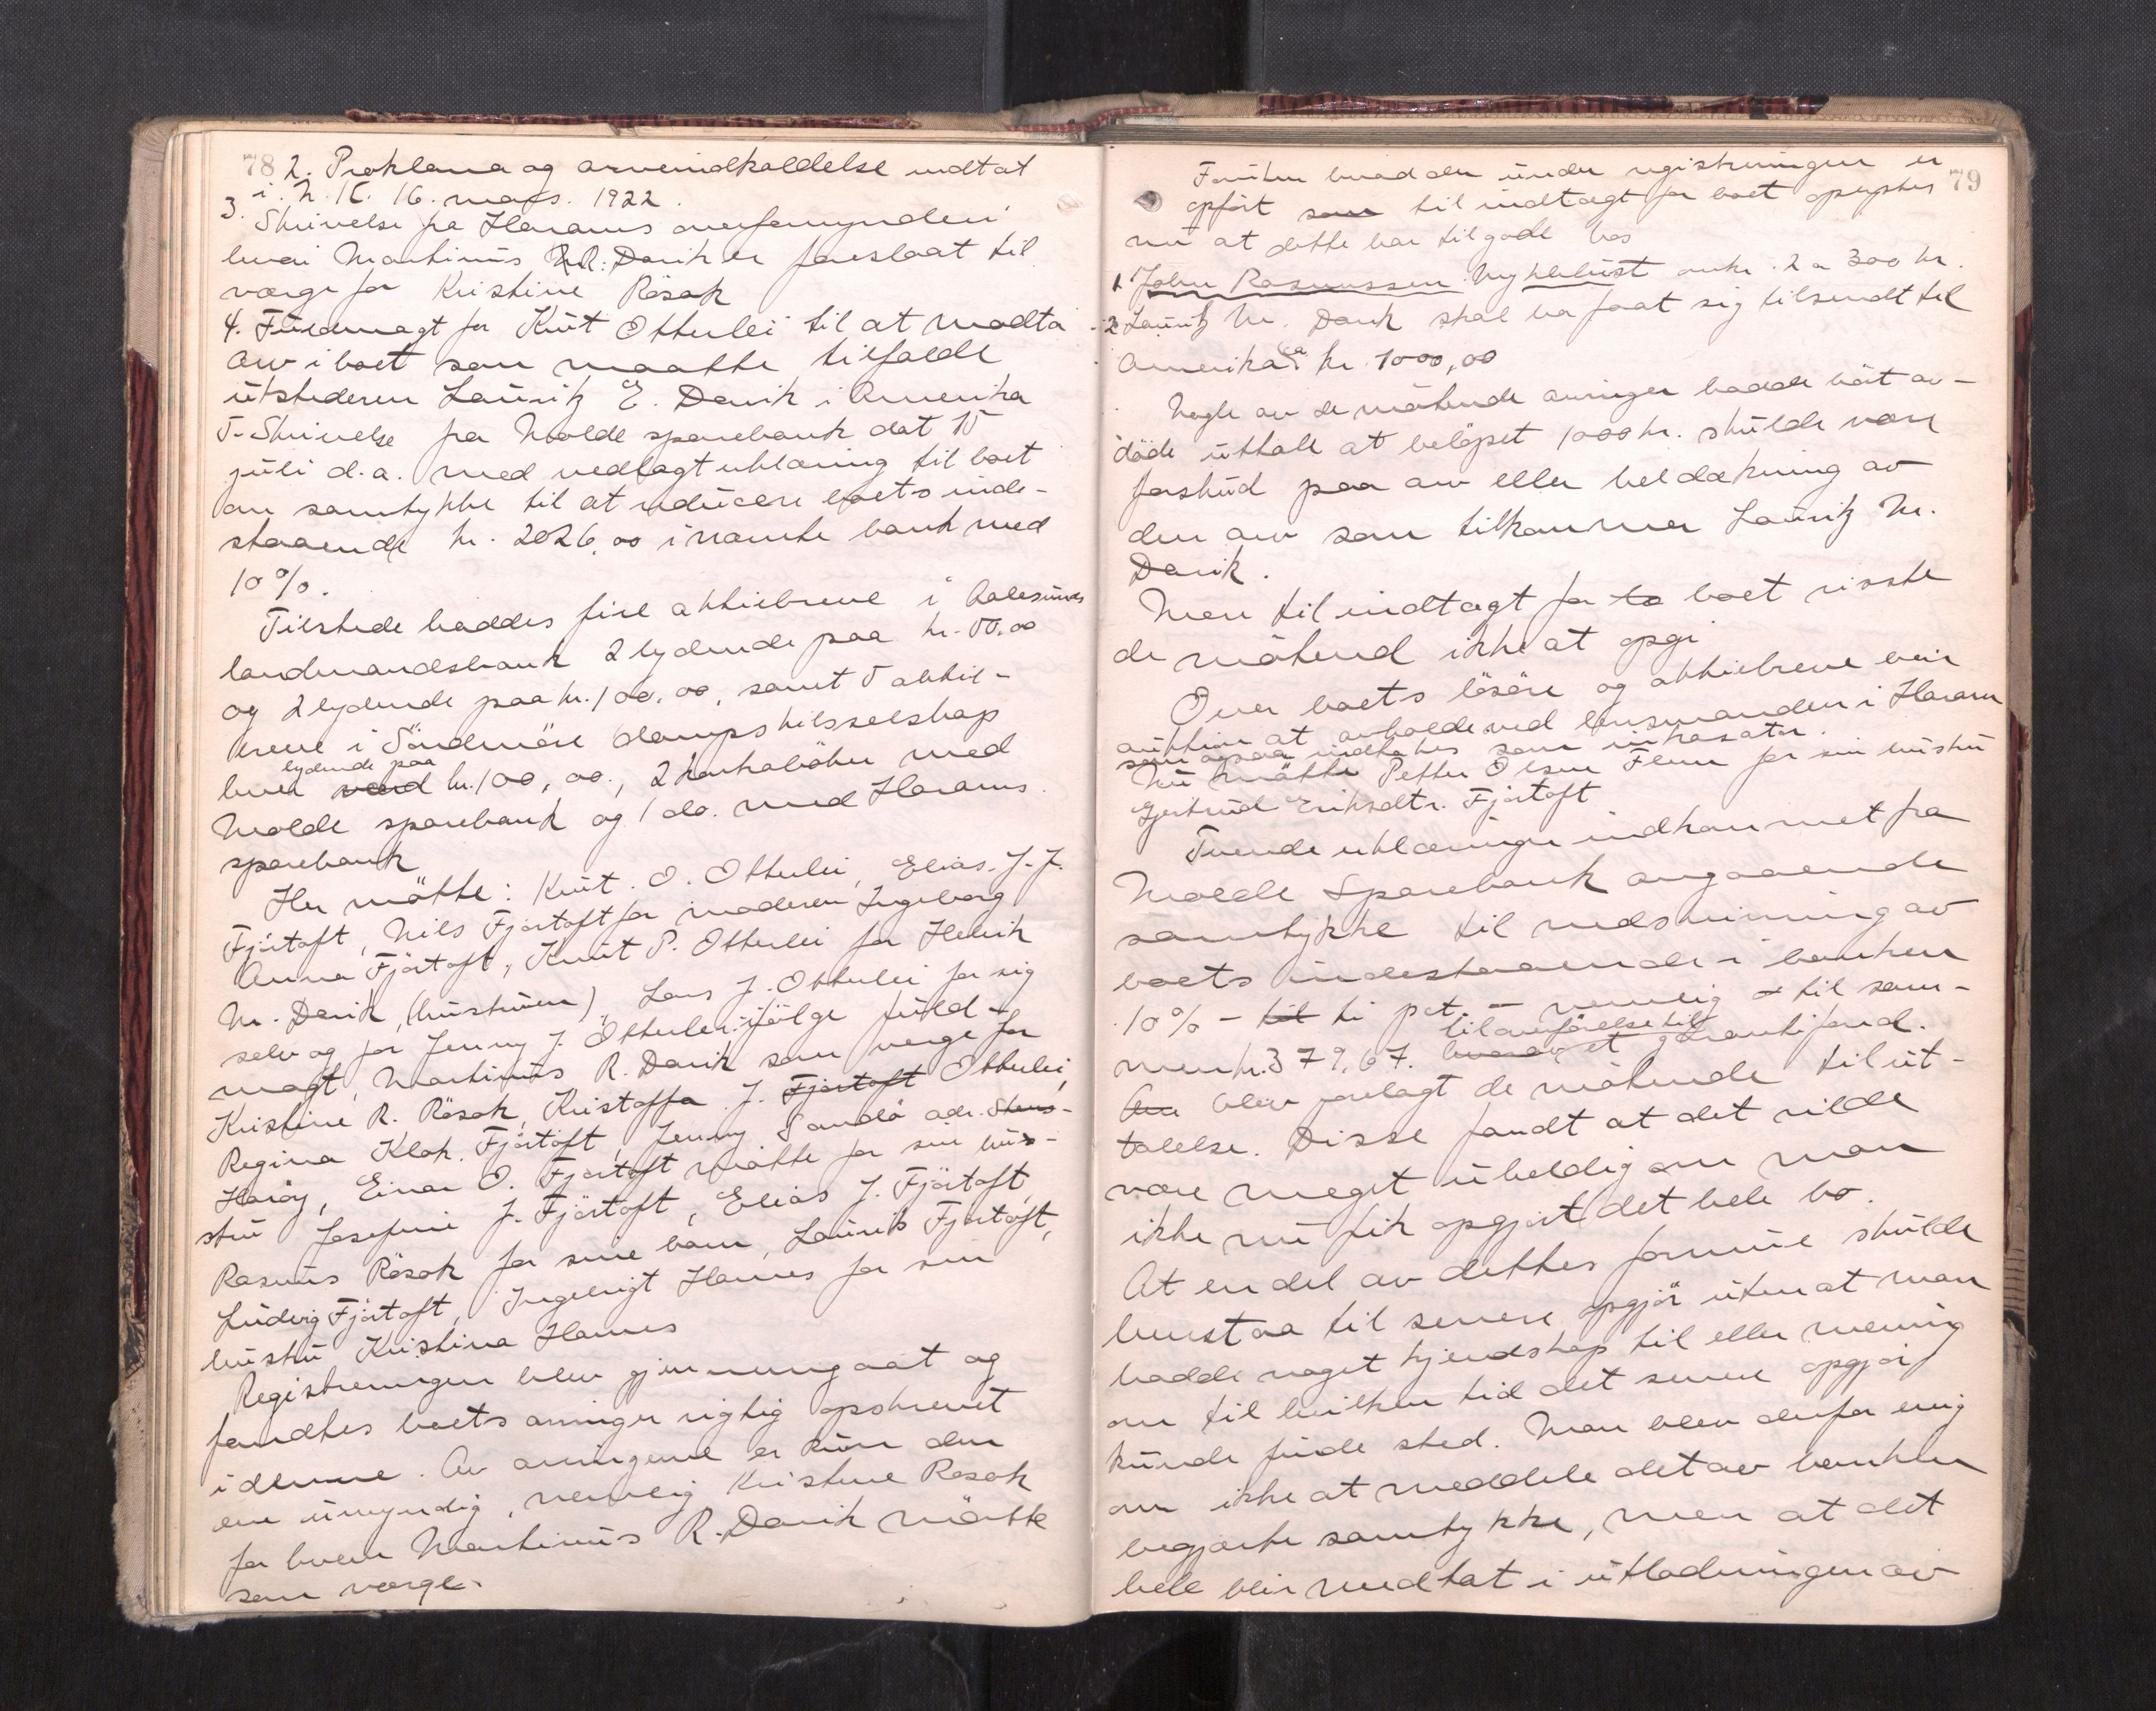 78 2. Proklama og arveindkaldelse indtat
i N. K. 16. mars. 1922.
3. Skrivelse fra Harams overformynderi
hvori Martinus R. Davik er foreslaat til
værge for Kristine Rösok
4. Fuldmagt for Knut Otterlei til at motta
arv i boet som maatte tilfalde
utstederen Lauritz E. Davik i Amerika
5. Skrivelse fra Molde sparebank dat 15
juli d.a. med vedlagt erklæring til boet
om samtykke til at reducere boets inde-
staaende kr. 2026,00 i nævnte bank med
10%.
Tilstede haddes fire aktiebreve i Aalesunds
landmandsbank 2 lydende paa kr. 50,00
og 2 lydende paa kr. 100,00, samt 5 aktie-
breve i Söndmöre dampskibsselskap
lydende paa
hver værd kr. 100,00., 2 kontraböker med
Molde sparebank og 1 do. med Harams
sparebank
Her mötte: Knut O. Otterlei, Elias J. J.
Fjörtoft, Nils Fjörtoft for moderen Ingeborg
Anna Fjörtoft, Knut P. Otterlei for Henrik
M. Davik, (hustruen), Lars J. Otterlei for sig
selv og for Jenny J. Otterlei ifölge fuld-
magt, Martinus R. Davik som verge for
Kristine R. Rösok, Kristoffa J. Fjörtoft Otterlei,
Regina Klok. Fjörtoft, Jenny Sandö adr.
Haröy, Einar O. Fjörtoft mötte for sin hus-
stru Josefine J. Fjörtoft, Elias J. Fjörtoft,
Rasmus Rösok for sine barn, Laurits Fjörtoft,
Ludvig Fjörtoft, Ingebrigt Hamnes for sin
hustru Kristina Hamnes
Registreringen blev gjennemgaat og
fandtes boets arvinger rigtig opskrevet
i denne. Av arvingene er kun den
ene umyndig, nemlig Kristine Rösok
for hvem Martinus R. Davik mötte
som værge.
79
Foruten hvad der under registreringen er
opfört som til indtægt for boet oplystes
nu at dette har tilgode hos
1. John Rasmussen Myklebust omkr. 2 a 300 kr.
2. Lauritz M. Davik skal ha faat sig tilsendt til
Amerika ca kr. 1000,00
Nogle av de mötende arvinger hadde hört av-
döde uttale at belöpet 1000 kr. skulde være
forskud paa arv eller hel dækning av
den arv som tilkommer Lauritz M.
Davik.
Mer til indtægt for to boet visste
de mötend ikke at opgi
Over boets lösöre og aktiebreve blir
auktion at avholde ved lensmanden i Haram
som ogsaa indtages som inkasator.
Nu mötte Petter Olsen Flem for sin hustru
Gjertrud Eriksdtr. Fjörtoft
Tvende erklæringer indkommet fra
Molde Sparebank angaaende
samtykke til nedskrivning av
boets indestaaende i banken
10% - til ti pct. - nemlig til sam-
til overförelse til
men kr. 379,67. hvorav et garantifond.
blev forelagt de mötende til ut-
talelse. Disse fandt at det vilde
være meget uheldig om man
ikke nu fik opgjort det hele bo.
At en del av dettes formue skulde
henstaa til senere opgjör uten at man
hadde noget kjendskap til eller mening
om til hvilken tid det senere opgjör
kunde finde sted. Man blev derfor enig
om ikke at meddele det av banken
begjærte samtykke, men at det
hele blir medtat i utlodningen av